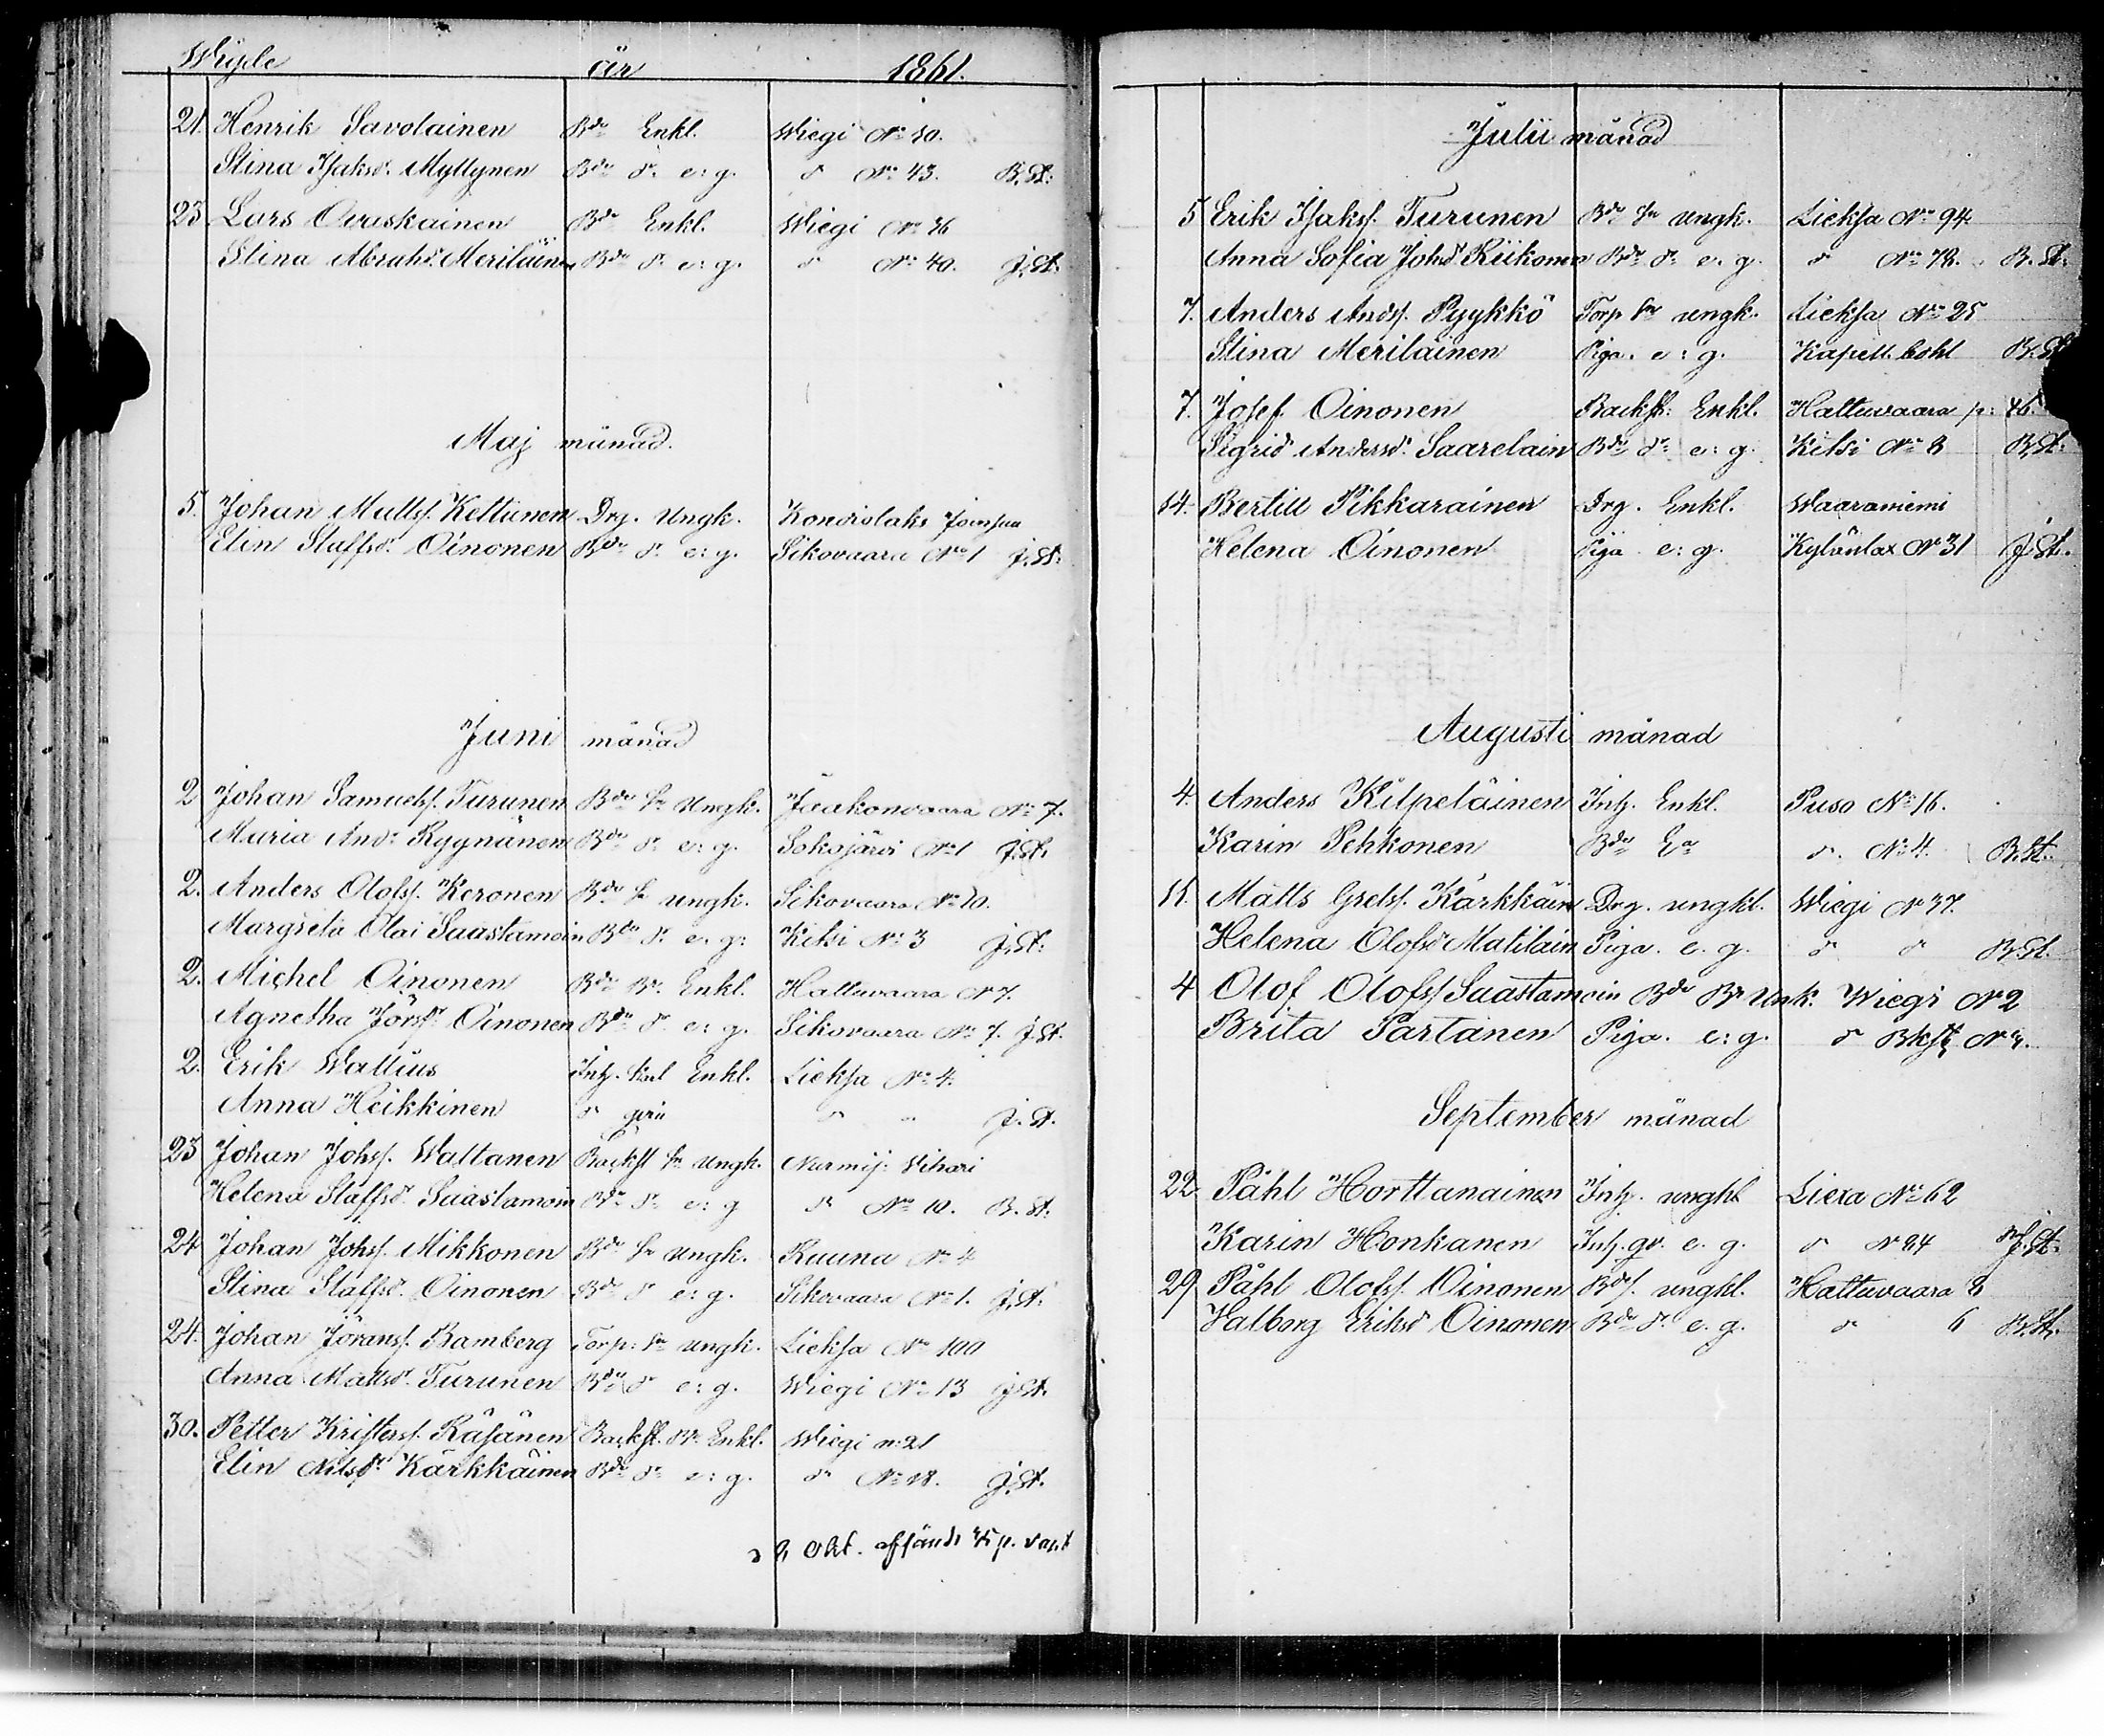 Wigde år 1861.
21. Henrik Savolainen Bde Enkl. Wiegi No 10.
Stina Isaksdr. Myllynen Bde dr. e: g. d No 43. B. St.
23 Lars Ovaskainen Bde Enkl. Wiegi No 36
Stina Abrahdr. Meriläinen Bde dr. e: g. d No 40. J. St.
Maj månad.
5. Johan Mattss. Kettunen Drg. Ungk. Kondiolaks
Elin Staffsdr. Oinonen Bde dr. e: g. Sikovaara No 1 J. St.
Juni månad
2 Johan Samuelss. Turunen Bde sn Ungk. Jaakonvaara No 7.
Maria Andr. Ryynänen Bde dr. e: g. Sokojärvi No 1 J. St.
2. Anders Olofss. Keronen Bde sn ungk. Sikovaara No 10.
Margreta Olai Saastamoin Bde dr. e. g: Kitsi No 3 J. St.
2. Michel Oinonen Bde Br. Enkl. Hattuvaara No 7.
Agnetha Jörsdr Oinonen Bde dr. e: g. Sikovaara No 7. J. St.
2. Erik Wallius Inh. karl Enkl. Lieksa No 4.
Anna Heikkinen d J. St.
23 Johan Johss. Wattanen Backst sn Ungk. Nurmij: Vihari
Helena Staffsdr. Saastamoin Bde dr. e: g d No 10. B. St.
24 Johan Johss. Mikkonen Bde sn Ungk. Ruuna No 4
Stina Staffsdr. Oinonen Bde dr e: g. Sikovaara No 1. J. St.
24. Johan Jöranss. Bamberg Torp: sn ungk. Lieksa No 100
Anna Mattsdr. Turunen Bde dr e: g. Wiegi No 13 J. St.
30. Petter Kristerss. Räsänen Backst. Br. Enkl. Wiegi n: 21
Elin Nilsdr Kärkkäinen Bde dr. e: g. d No 18. J. St.
2 Okt. afsände
Julii månad
5 Erik Isakss. Turunen Bde sn Ungk. Lieksa No 94.
Anna Sofia Johdr Kiikonen Bde dr. e. g. d No 78. B. St.
7. Anders Andss. Pyykkö Torp sn ungk. Lieksa No 25
Stina Meriläinen Piga. e: g. Kapell. bohl B. St
7. Josef Oinonen Backst: Enkl. Hattuvaara p: 46.
Sigrid Andersdr. Saarelain Bde dr. e: g. Kitsi No 8 B. St.
14. Bertill Pikkarainen Drg. Enkl. Waaraniemi
Helena Oinonen Piga e: g. Kylänlax No 31 J. St.
Augusti månad
4. Anders Kilpeläinen Inh. Enkl. Puso No 16.
Karin Pehkonen Bde Ea d. No 4. B. St.
11. Matts Grelss. Kärkkäin Drg. ungkl. Wiegi No 37.
Helena Olofsdr Matilain Piga. e. g. d d B. St.
4 Olof Olofss Saastamoin Bde Br Unk. Wiegi No 2
Brita Partanen Piga. e: g. d Bkst No 4.
September månad
22. Påhl Horttanainen Inh. ungkl Liexa No 62
Karin Honkanen Inh. gr. e. g. d No 84 J. St.
29 Påhl Olofss. Oinonen Bds. ungkl. Hattuvaara 8
Halborg Eriksdr Oinonen Bde dr. e. g. d 6 B. St.